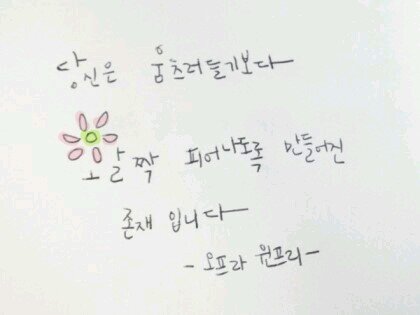 당신은 움츠려들기보다
활짝 피어나도록 만들어진
존재 입니다
- 오프라 윈프리 -